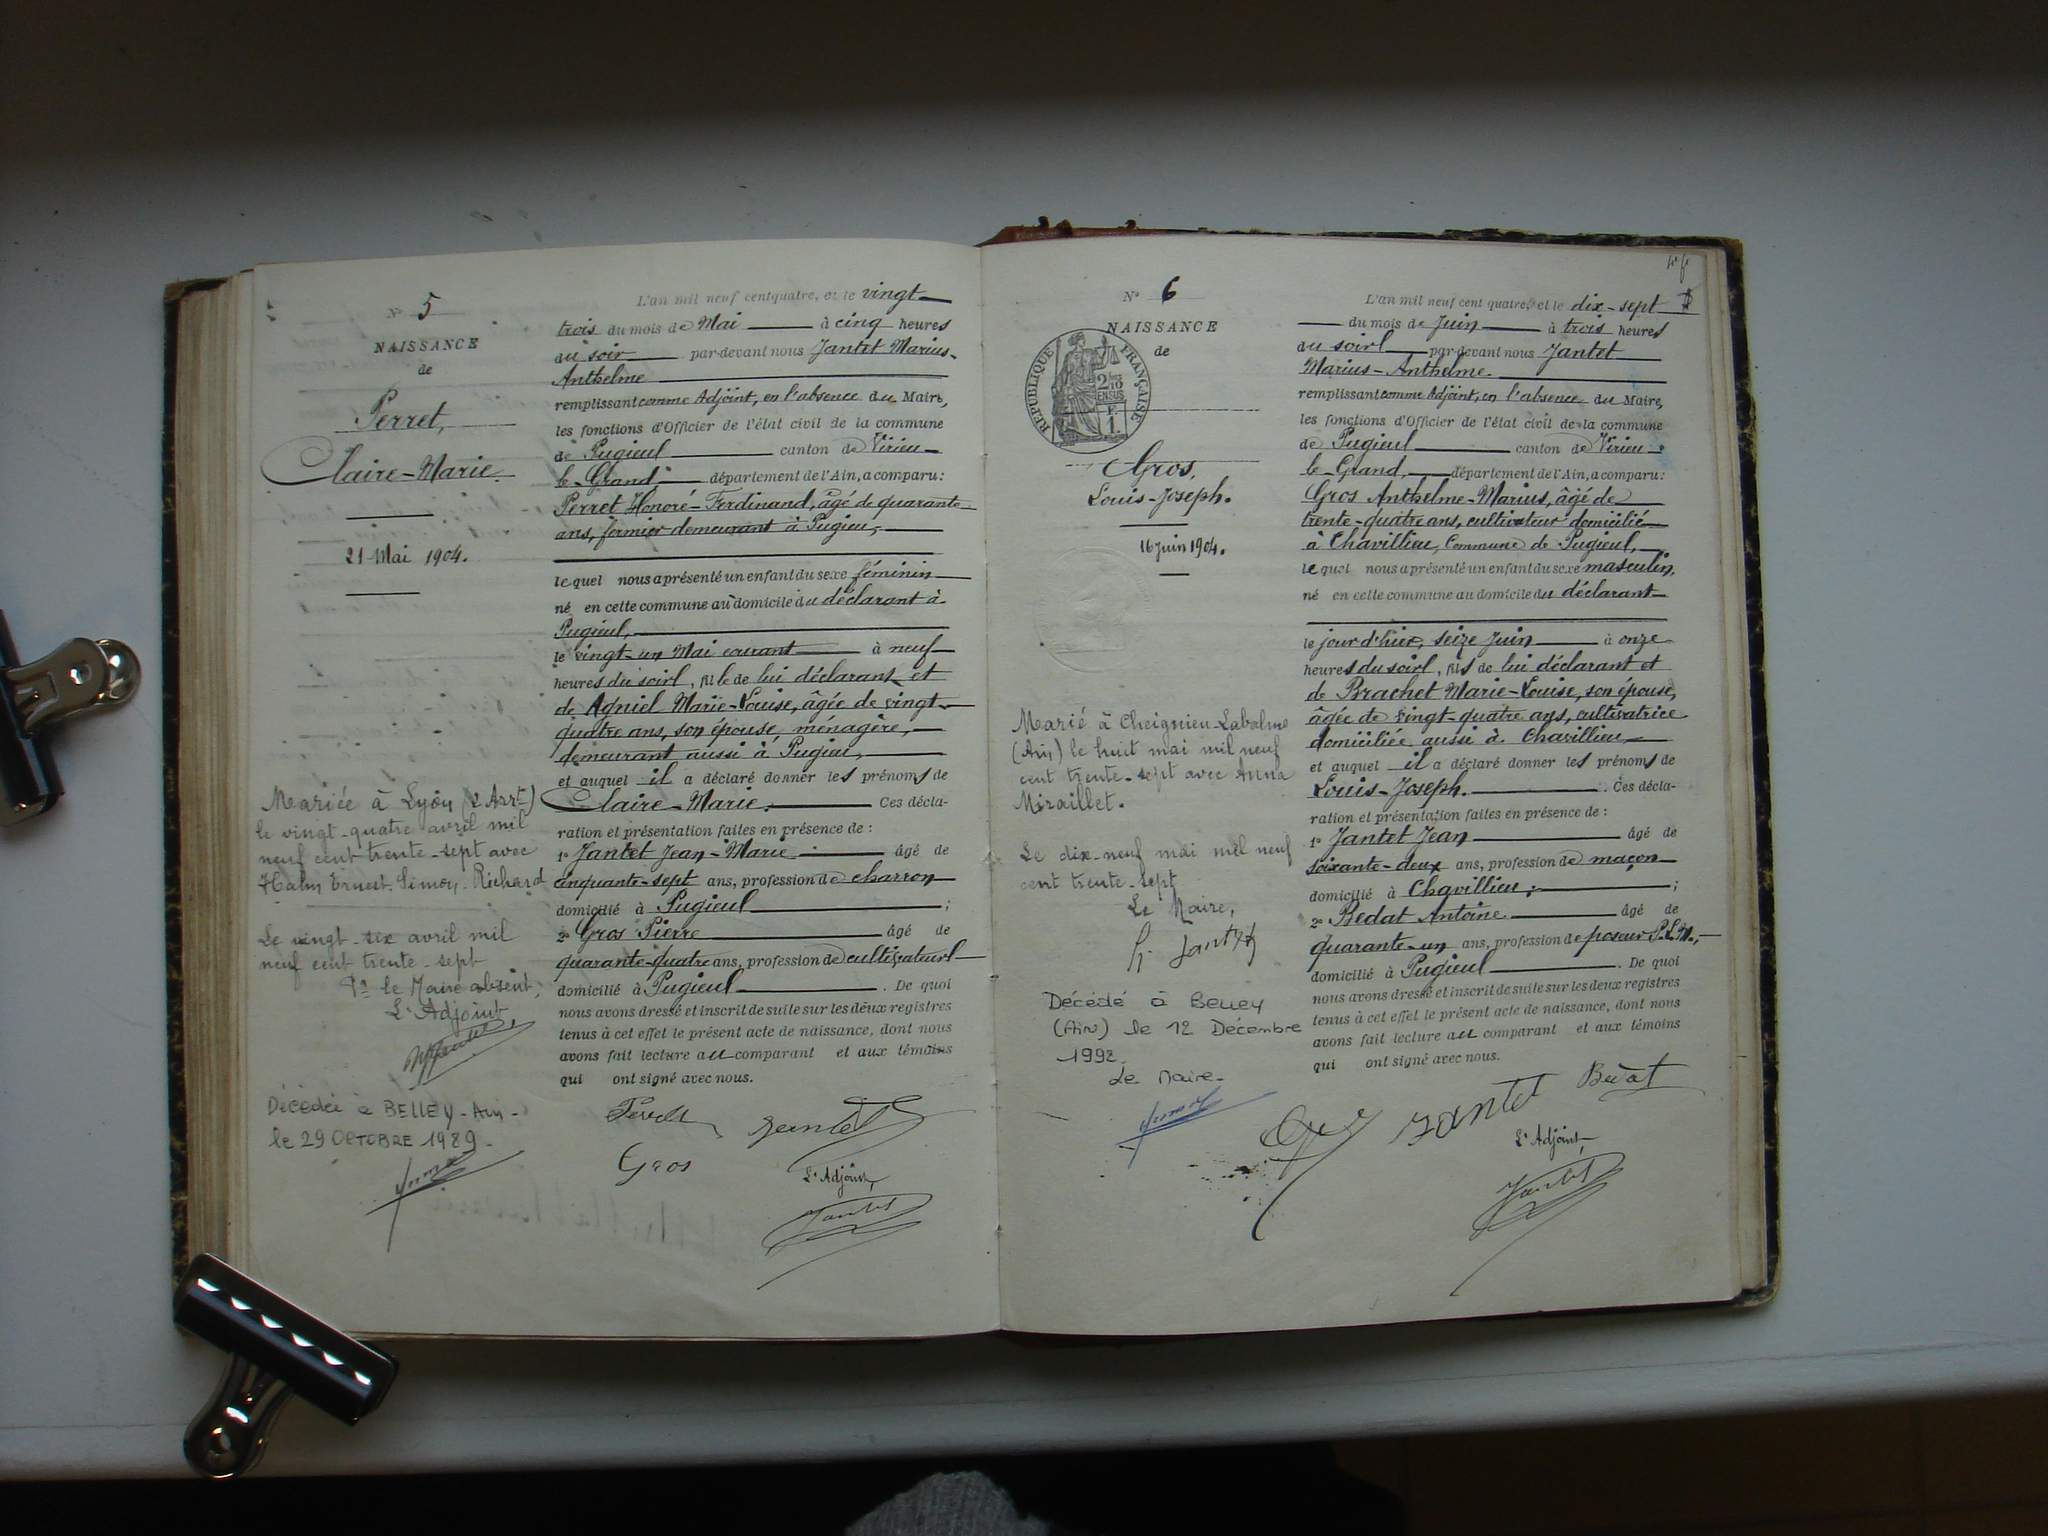 N° 5
NAISSANCE
de
Perret,
Claire-Marie.
21 Mai 1904.
Mariée à Lyon (2 Arrt)
le vingt-quatre avril mil
neuf cent trente-sept avec
Hahn Ernest. Simon. Richard
Le vingt-six avril mil
neuf cent trente-sept
Pr le Maire absent,
L'Adjoint,
Décédée à BELLEY-Ain-
le 29 OCTOBRE 1989.
L'an mil neuf cent quatre, et le vingt-
trois du mois de Mai à cinq heures
du soir par-devant nous Jantet Marius-
Anthelme
remplissant comme Adjoint, en l'absence du Maire,
les fonctions d'Officier de l'état civil de la commune
de Pugieu canton de Virieu-
le-Grand, département de l'Ain, a comparu:
Perret Honoré-Ferdinand, âgé de quarante-
ans, fermier demeurant à Pugieu,
lequel nous a présenté un enfant du sexe féminin
né en cette commune au domicile du déclarant à
Pugieu,
le vingt-un Mai courant à neuf
heures du soir, fille de lui déclarant et
de Agniel Marie-Louise, âgée de vingt-
quatre ans, son épouse, ménagère,
demeurant aussi à Pugieu,
et auquel il a déclaré donner les prénoms de
Claire-Marie. Ces décla-
ration et présentation faites en présence de :
1° Jantet Jean-Marie âgé de
cinquante-sept ans, profession de charron
domicilié à Pugieu ;
2° Gros Pierre âgé de
quarante-quatre ans, profession de cultivateur
domicilié à Pugieu . De quoi
nous avons dressé et inscrit de suite sur les deux registres
tenus à cet effet le présent acte de naissance, dont nous
avons fait lecture au comparant et aux témoins
qui ont signé avec nous.
Perret Jantet
Gros
L'Adjoint,
Jantet
N° 6
NAISSANCE
de
RÉPUBLIQUE FRANÇAISE
2/10
EN SUS
1F.
Gros,
Louis-Joseph.
16 Juin 1904.
Marié à Cheignieu-Labalme
(Ain) le huit mai mil neuf
cent trente-sept avec Anna
Miraillet.
Le dix-neuf mai mil neuf
cent trente-sept
Le Maire,
Jantet
Décédé à BELLEY
(Ain) le 12 Décembre
1992.
Le Maire.
L'an mil neuf cent quatre, et le dix-sept
du mois de Juin à trois heures
du soir par-devant nous Jantet
Marius-Anthelme
remplissant comme Adjoint, en l'absence du Maire,
les fonctions d'Officier de l'état civil de la commune
de Pugieu canton de Virieu-
le-Grand, département de l'Ain, a comparu:
Gros Anthelme-Marius, âgé de
trente-quatre ans, cultivateur domicilié
à Chavillieu, Commune de Pugieu,
lequel nous a présenté un enfant du sexe masculin,
né en cette commune au domicile du déclarant
le jour d'hier, seize Juin à onze
heures du soir, fils de lui déclarant et
de Brachet Marie-Louise, son épouse,
âgée de vingt-quatre ans, cultivatrice
domiciliée aussi à Chavillieu
et auquel il a déclaré donner les prénoms de
Louis-Joseph. Ces décla-
ration et présentation faites en présence de :
1° Jantet Jean âgé de
soixante-deux ans, profession de maçon
domicilié à Chavillieu, ;
2° Bedat Antoine âgé de
quarante-un ans, profession de poseur P.L.M.,
domicilié à Pugieu . De quoi
nous avons dressé et inscrit de suite sur les deux registres
tenus à cet effet le présent acte de naissance, dont nous
avons fait lecture au comparant et aux témoins
qui ont signé avec nous.
Gros Jantet Bedat
L'Adjoint,
Jantet